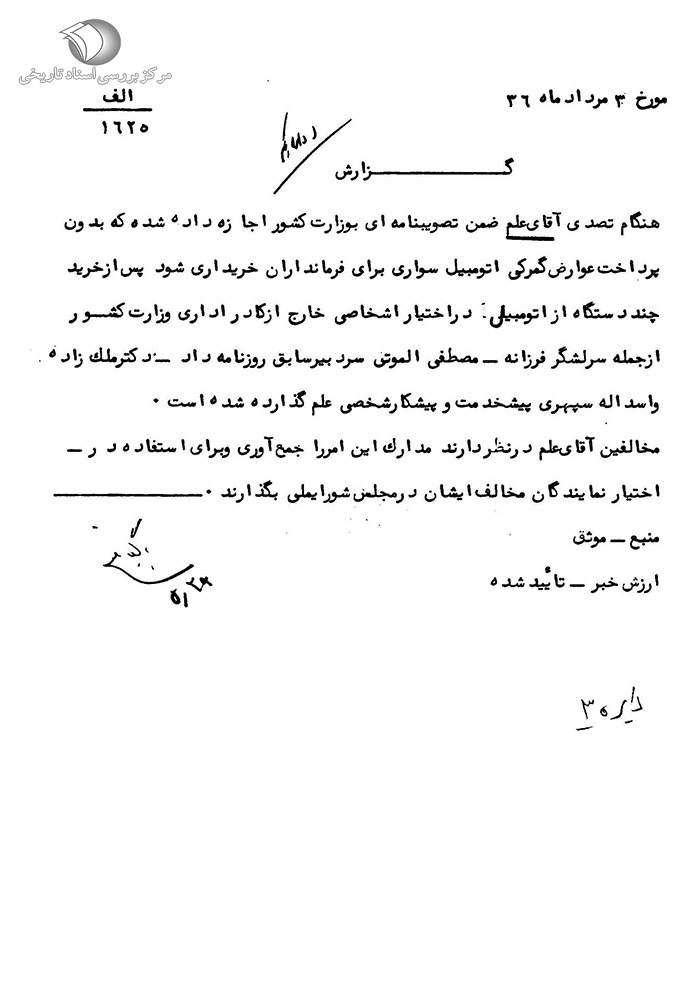 مرکز بررسی اسناد تاریخی
مورخ ۳ مرداد ماه ۳۶
الف
۱۶۲۵
گزارش
هنگام تصدی آقای علم ضمن تصویبنامه ای بوزارت کشور اجازه داده شده که بدون
پرداخت عوارض گمرکی اتومبیل سواری برای فرمانداران خریداری شود پس از خرید
چند دستگاه از اتومبیلی دراختیار اشخاصی خارج ازکادر اداری وزارت کشور
ازجمله سرلشگر فرزانه ــ مصطفی الموتی سردبیر سابق روزنامه داد ــ دکتر ملك زاده
واسداله سپهری پیشخدمت و پیشکار شخصی علم گذارده شده است ۰
مخالفین آقای علم درنظر دارند مدارك این امررا جمع آوری وبرای استفاده در ــ
اختیار نمایندگان مخالف ایشان درمجلس شورایملی بگذارند ۰
منبع ــ موثق
ارزش خبر ــ تأیید شده
دایره ۳